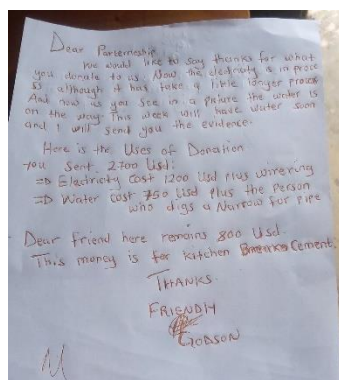 Dear Parterneship
We would like to say thanks for what
you donate to us. Now the electricity is in prose
ss although it has take a little longer process
And now as you see in a picture the water is
on the way. This week will have water soon
and I will send you the evidence.
Here is the Uses of Donation
you sent 2700 Usd:
⇒ Electricity Cost 1200 Usd plus wirering
⇒ Water cost 750 Usd plus the Person
who digs a Narrow for pipe
Dear Friend here remains 800 Usd.
This money is for kitchen Cement.
THANKS.
FRIENDLY
GODSON